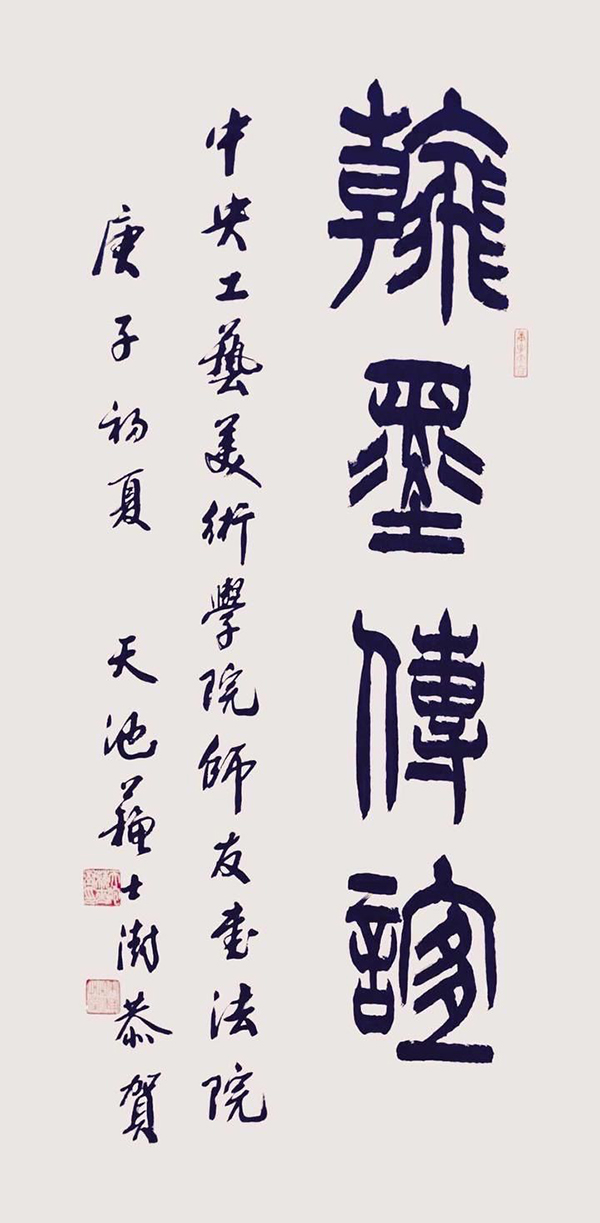 翰墨傳誼
中央工藝美術學院師友書法院
庚子初夏 天池蘇士澍恭賀